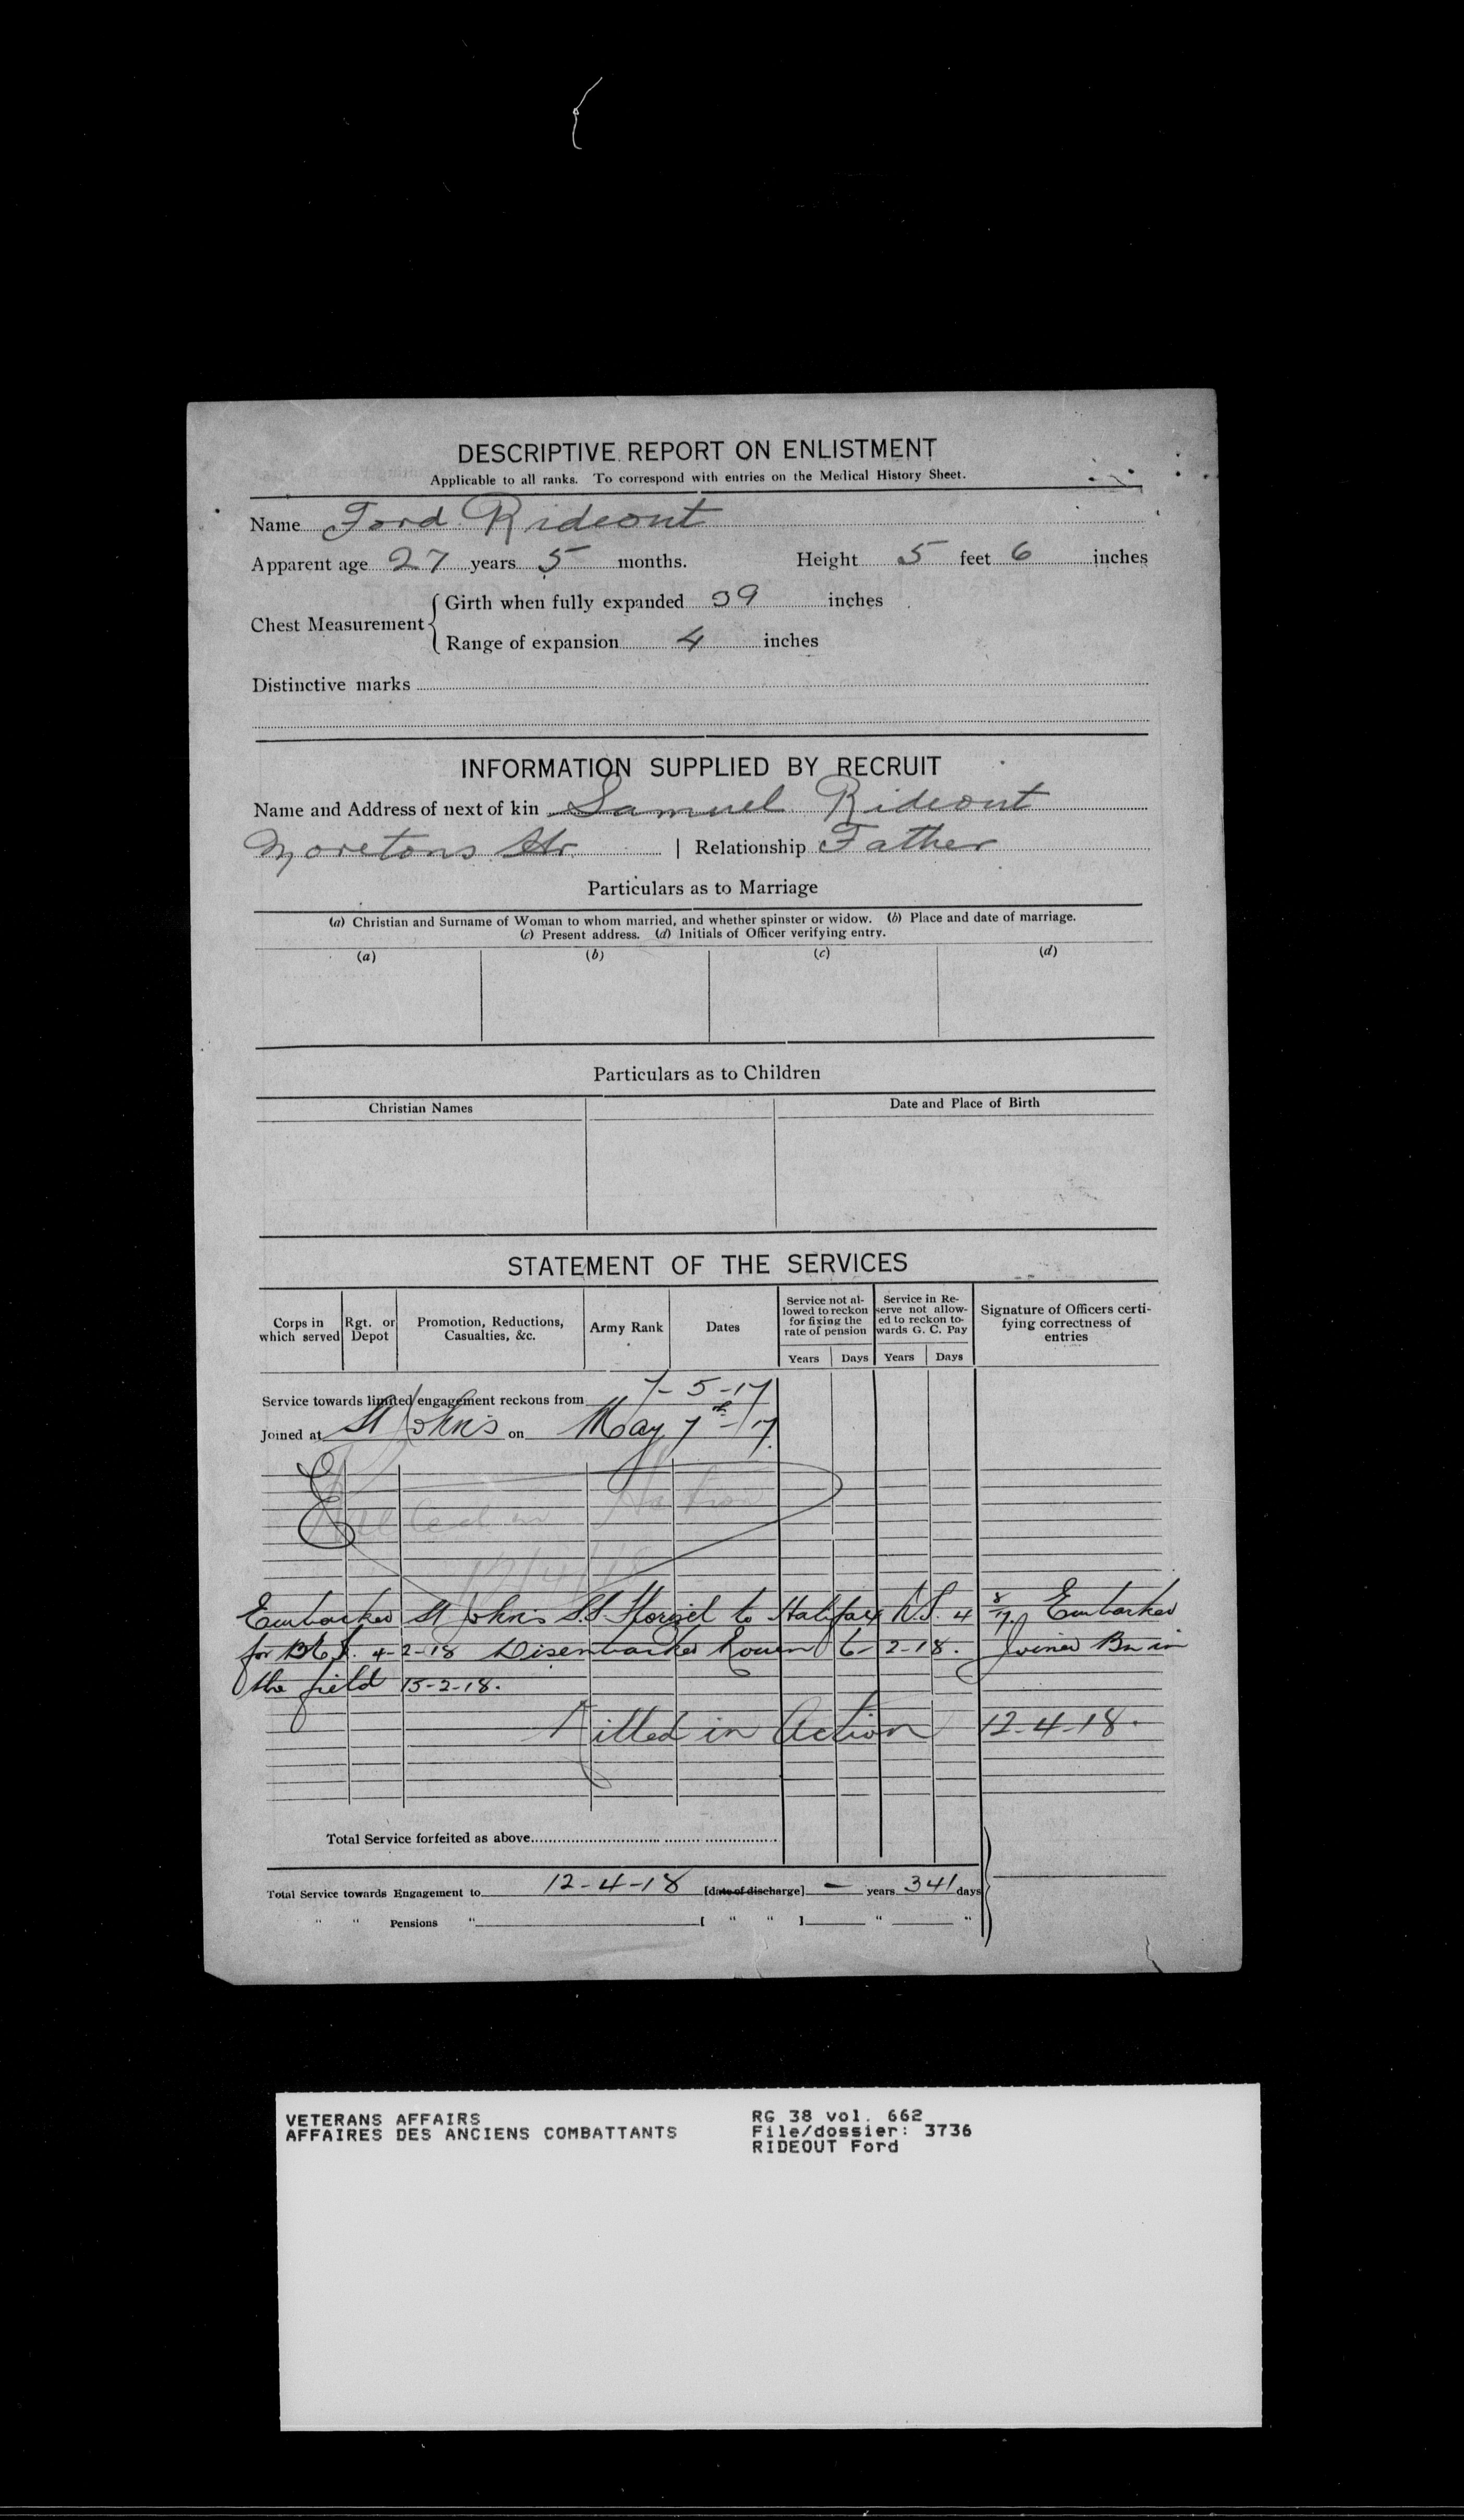 DESCRIPTIVE REPORT ON ENLISTMENT
Applicable to all ranks. To correspond with entries on the Medical History Sheet.
Name Ford Rideout
Apparent age 27 years 5 months. Height 5 feet 6 inches
Chest Measurement { Girth when fully expanded 39 inches
Range of expansion 4 inches
Distinctive marks
INFORMATION SUPPLIED BY RECRUIT
Name and Address of next of kin Samuel Rideout
Moretons Hr | Relationship Father
Particulars as to Marriage
(a) Christian and Surname of Woman to whom married, and whether spinster or widow. (b) Place and date of marriage.
(c) Present address. (d) Initials of Officer verifying entry.
(a) (b) (c) (d)
Particulars as to Children
Christian Names Date and Place of Birth
STATEMENT OF THE SERVICES
Corps in which served Rgt. or Depot Promotion, Reductions, Casualties, &c. Army Rank Dates Service not allowed to reckon for fixing the rate of pension Service in Reserve not allowed to reckon towards G. C. Pay Signature of Officers certifying correctness of entries
Years Days Years Days
Service towards limited engagement reckons from 7-5-17
Joined at St John's on May 7th/17
Killed in Action
12/4/18
Embarked St John's S.S. Florizel to Halifax N.S. 4 8/17. Embarked
for B.E.F. 4-2-18 Disembarked Rouen 6-2-18. Joined Bn in
the field 15-2-18.
Killed in Action 12-4-18.
Total Service forfeited as above
Total Service towards Engagement to 12-4-18 [date of discharge] — years 341 days
" " Pensions " [ " " ] " "
VETERANS AFFAIRS RG 38 vol. 662
AFFAIRES DES ANCIENS COMBATTANTS File/dossier: 3736
RIDEOUT Ford